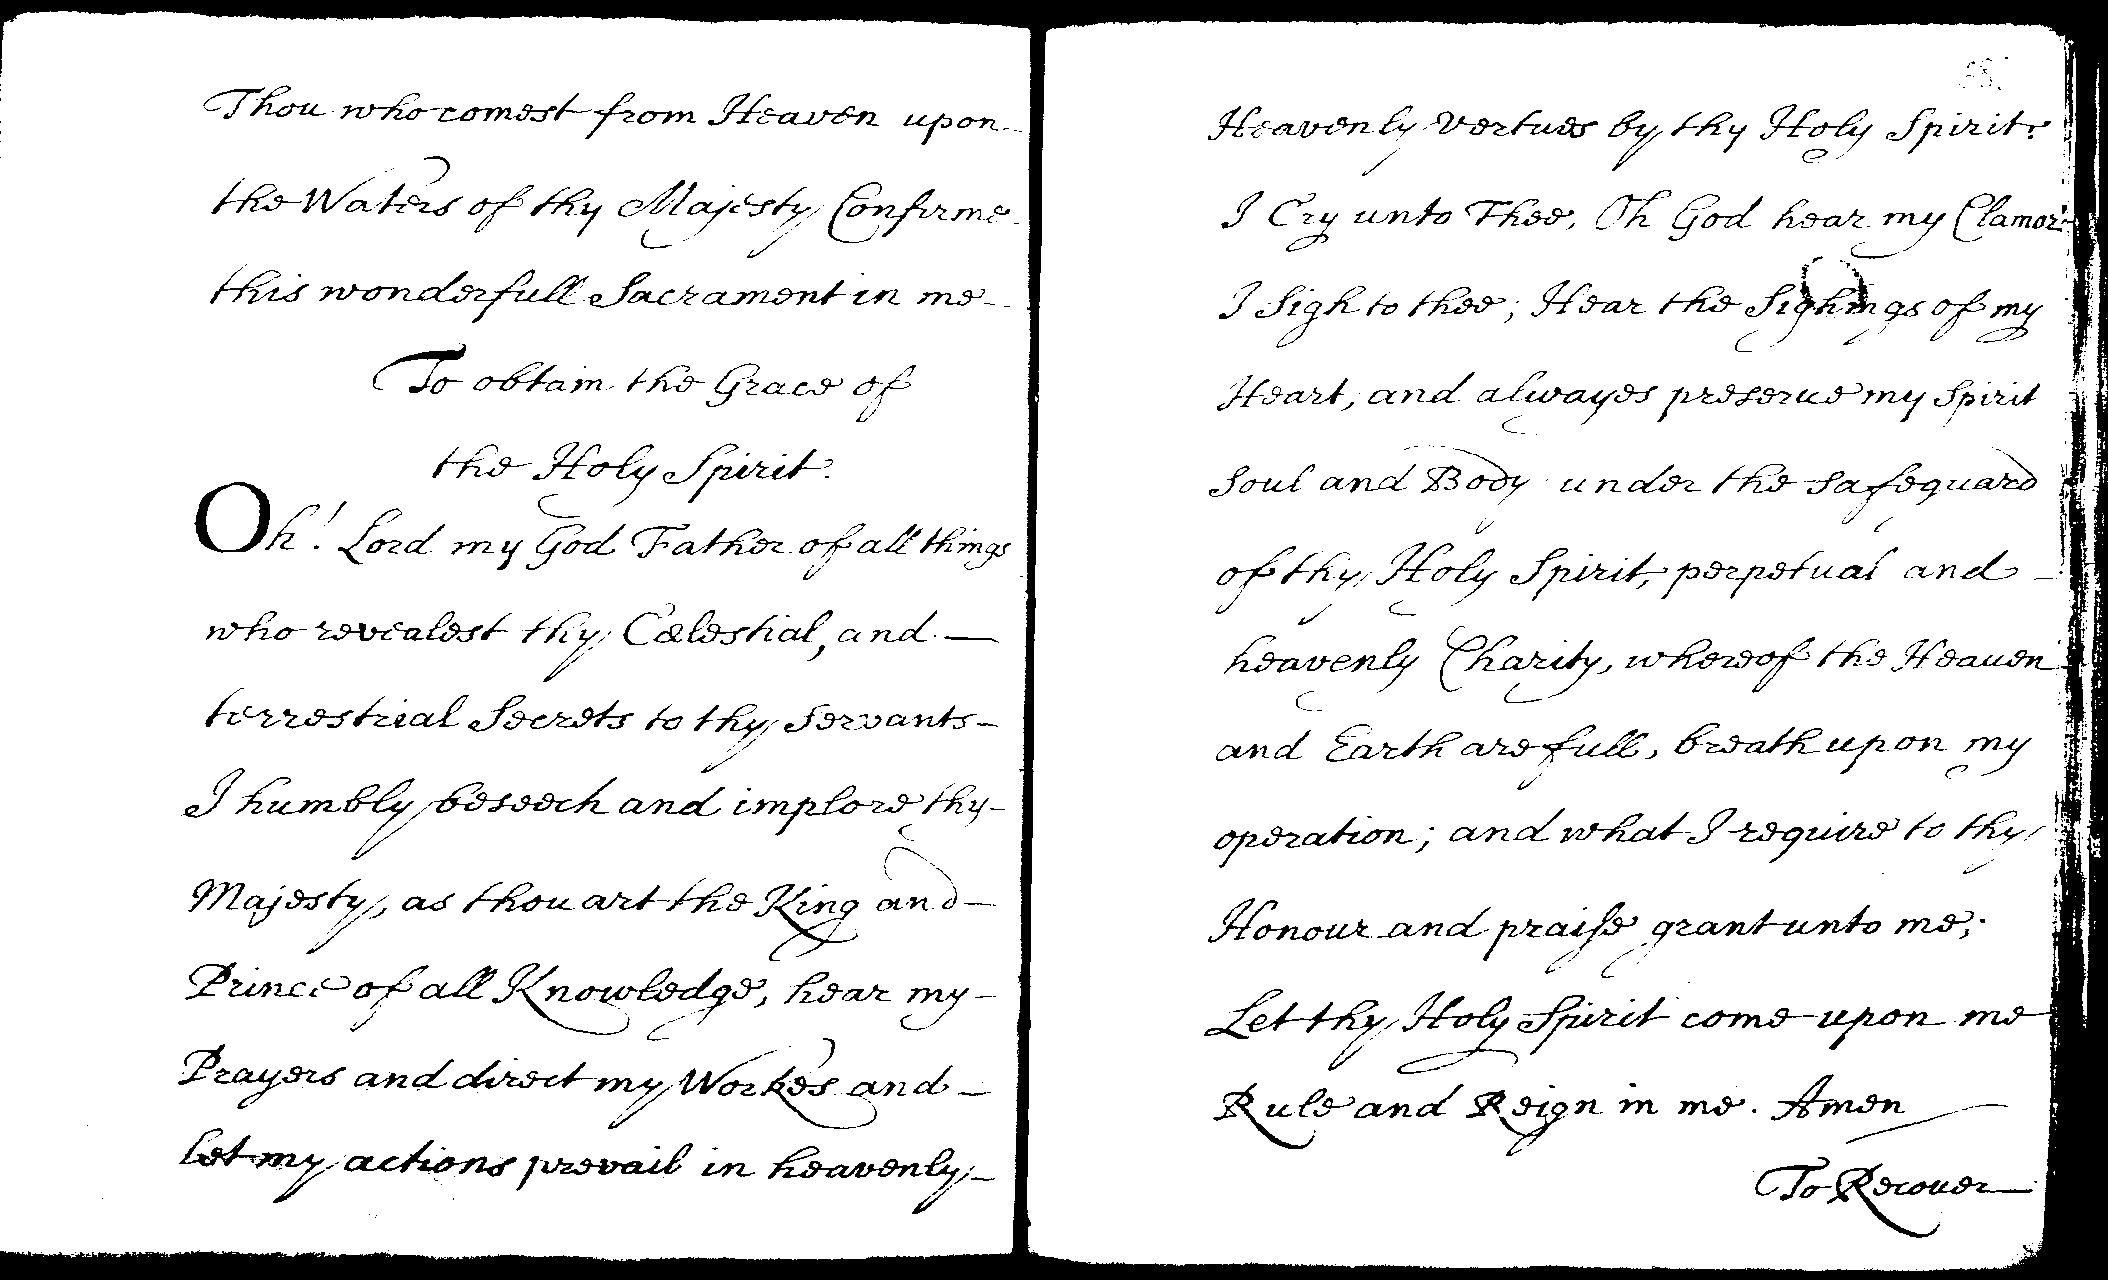 Thou who comest from Heaven upon
the Waters of thy Majesty Confirme
this wonderfull Sacrament in me
To obtain the Grace of
the Holy Spirit.
Oh! Lord my God Father of all things
who revealest thy Cælestial, and
terrestrial Secrets to thy Servants
I humbly beseech and implore thy
Majesty, as thou art the King and
Prince of all Knowledge, hear my
Prayers and direct my Workes and
let my actions prevail in heavenly
Heavenly vertues by thy Holy Spirit:
I Cry unto Thee, Oh God hear my Clamor:
I Sigh to thee; Hear the Sighings of my
Heart, and alwayes preserve my Spirit
Soul and Body under the safeguard
of thy Holy Spirit, perpetual and
heavenly Charity, whereof the Heaven
and Earth are full, breath upon my
operation; and what I require to thy
Honour and praise grant unto me;
Let thy Holy Spirit come upon me
Rule and Reign in me. Amen
To Recover